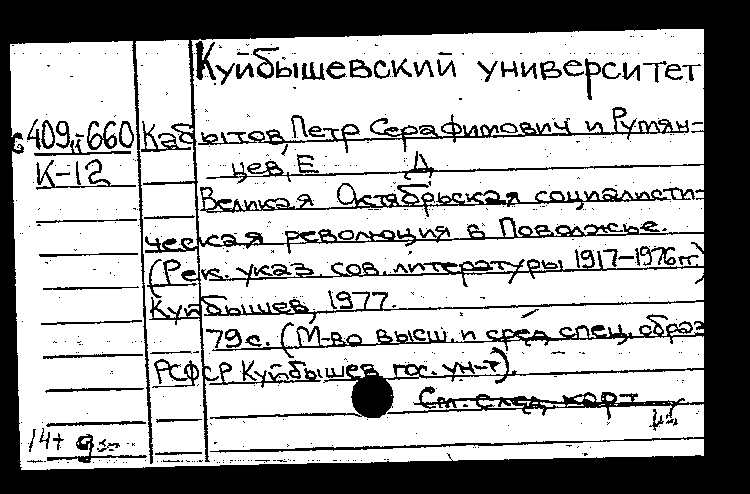 Куйбышевский университет
с 409,II-660 Кабытов, Петр Серафимович и Румян-
К-12 цев, Е Д
Великая Октябрьская социалисти-
ческая революция в Поволжье.
(Рек. указ. сов. литературы 1917-1976 гг)
Куйбышев, 1977.
79 с. (М-во высш. и сред. спец. образ
РСФСР Куйбышев. гос. ун-т).
См. след. карт